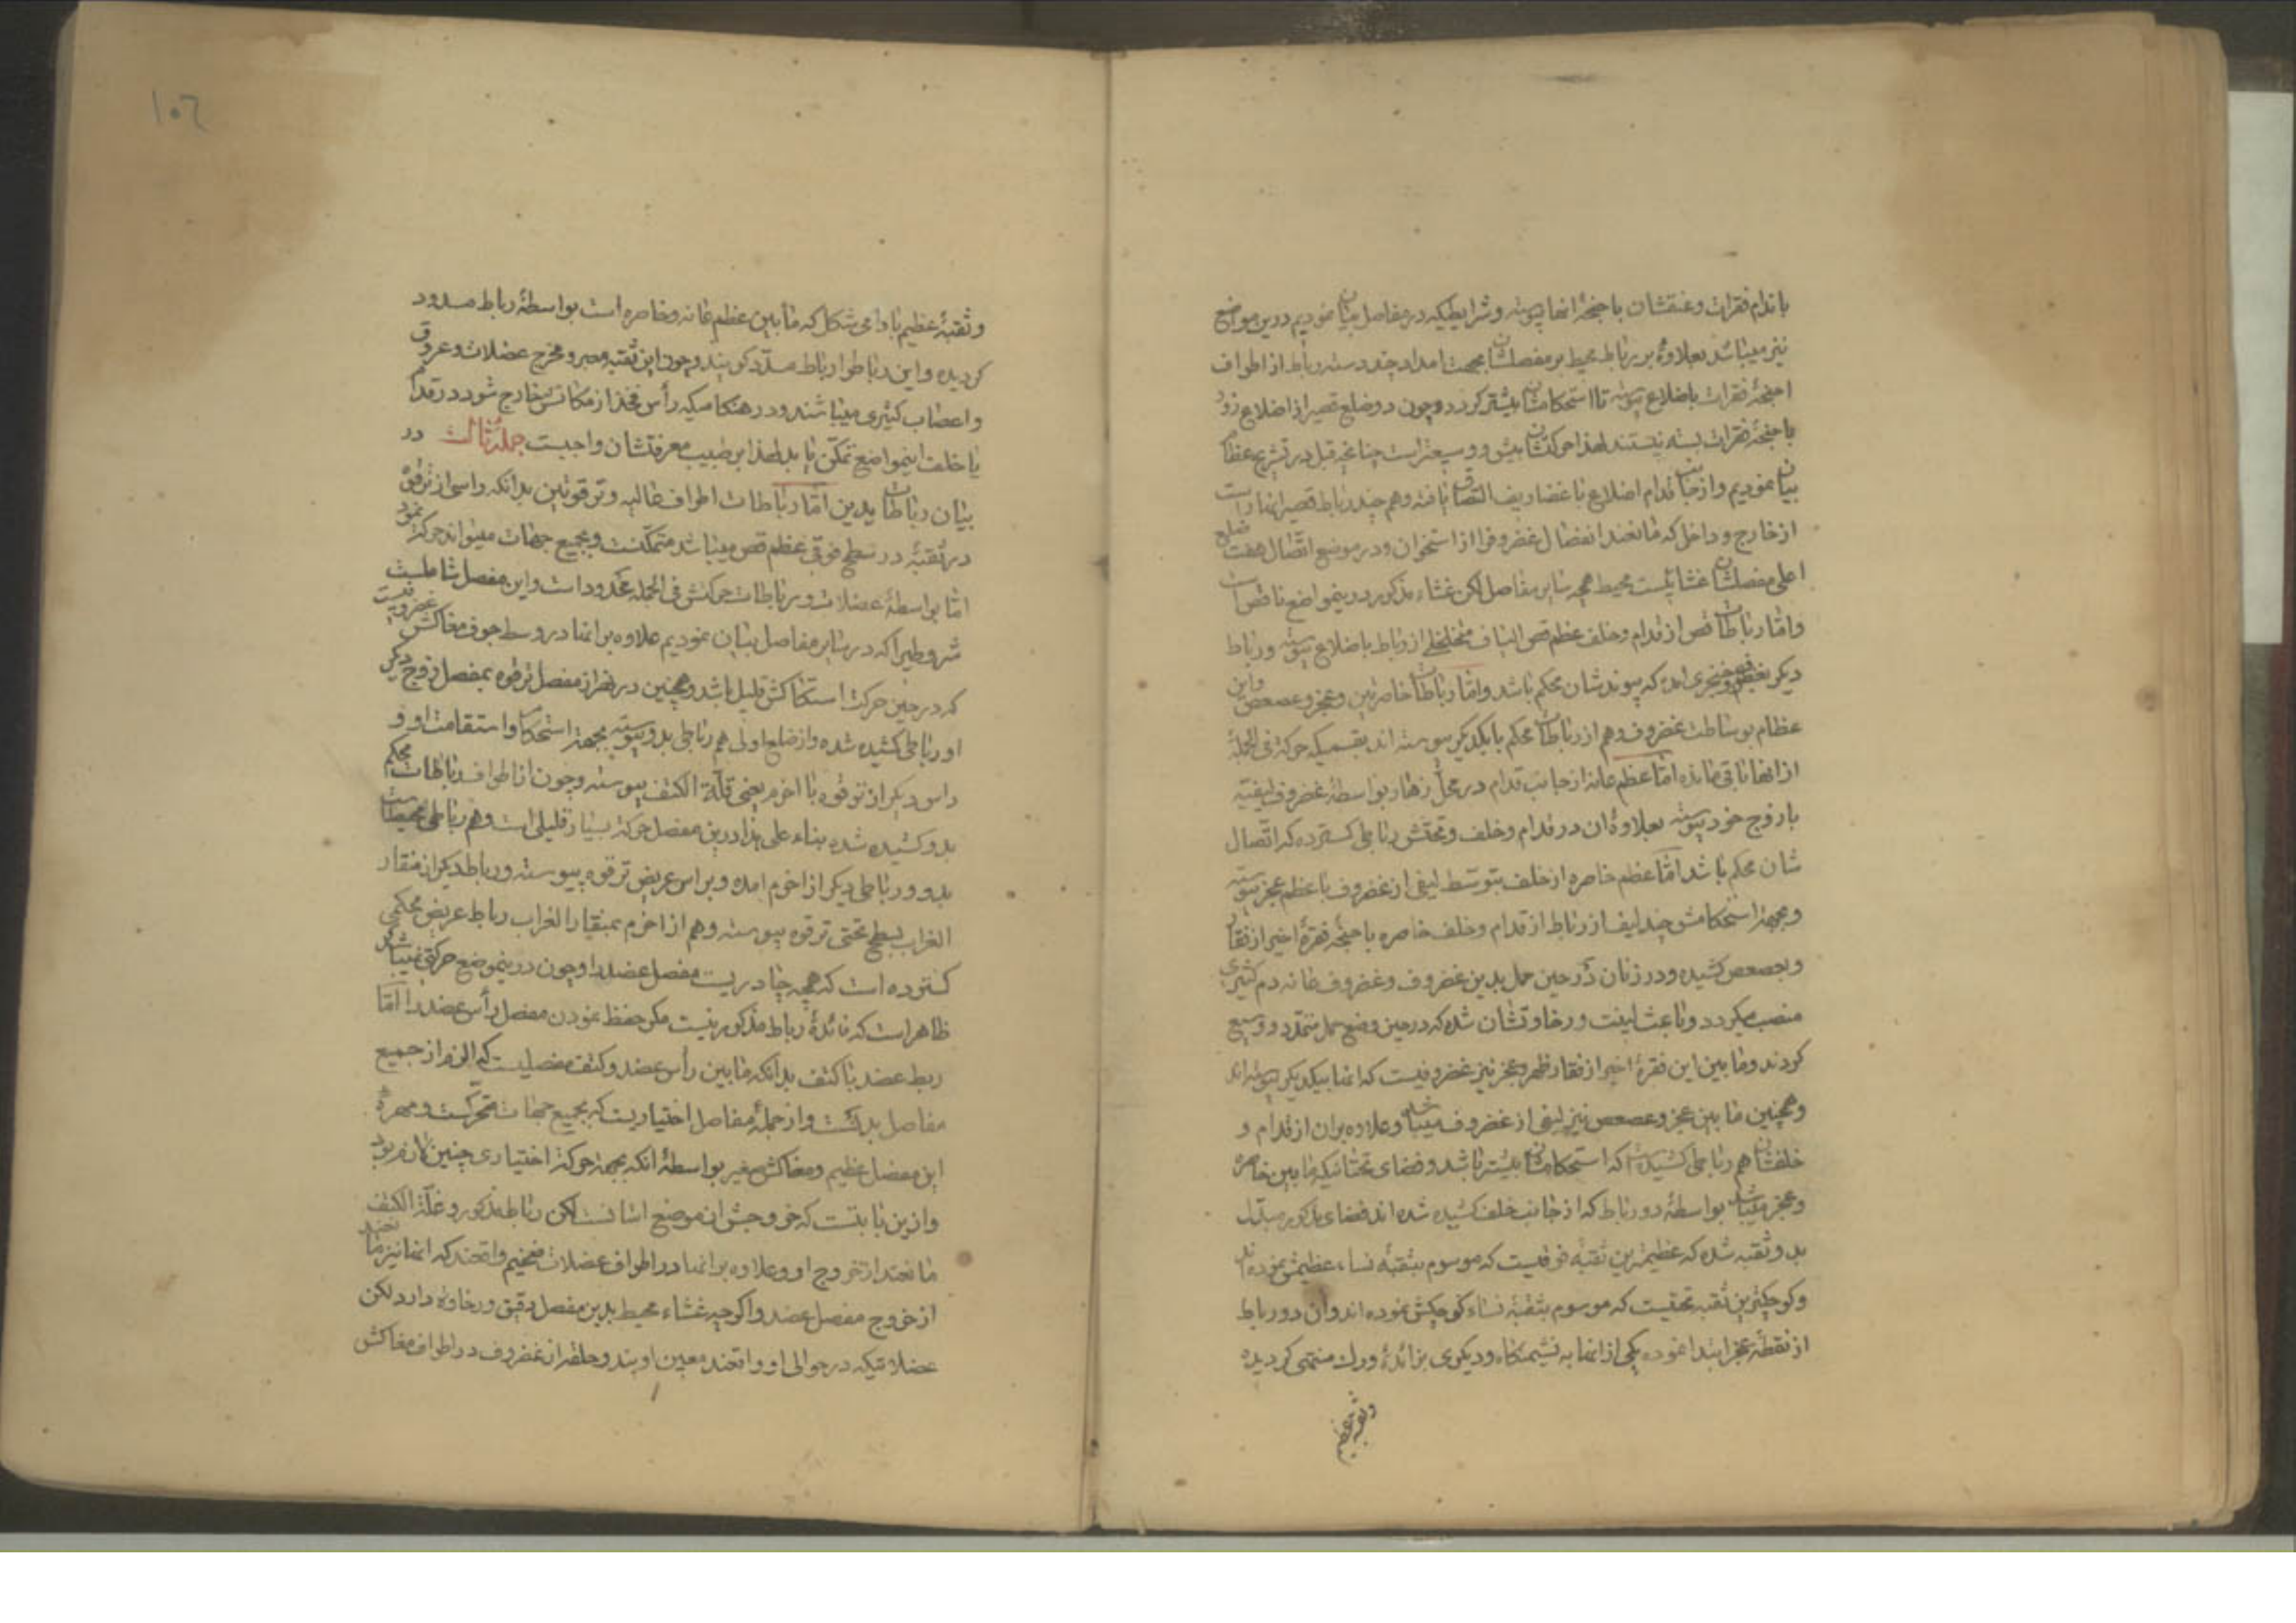 با ندام فقرات وعنقشان باجنحهٔ انها پیوسته وشرایطیکه در مفاصل بیان نمودیم درین مواضع
نیز میباشد بعلاوهٔ بر رباط محیط بر مفصلشان بجهت امداد چند دسته رباط از اطراف
اجنحهٔ فقرات باضلاع پیوسته تا استحکامشان بیشتر کردد وچون دو ضلع قصیر از اضلاع زور
باجنحهٔ فقرات بسته نیستند لهذا حرکتشان بیش ووسیعتر است چنانچه قبل در تشریح عظام
بیان نمودیم واز جانب قدام اضلاع با غضاریف التصاق یافته وهم چند رباط قصیر انها راست
از خارج وداخل که مانعند انفصال غضروفرا از استخوان ودر موضع اتصال هفت ضلع
اعلی مفصلشان غشائیست محیط همچه سایر مفاصل لکن غشاء مذکور درینمواضع ناقص است
واما رباطات قص از قدام وخلف عظم قص الیاف متخلخلی از رباط باضلاع پیوسته ورباط
دیکر بغضروف خنجری امده که پیوندشان محکم باشد واما رباطات خاصرتین وعجز وعصعص واین
عظام بوساطت غضروف وهم از رباطات محکم با یکدیکر پیوسته اند بقسمیکه حرکة فی الجملهٔ
از انها باقی مانده اما عظم عانه از جانب قدام در محل زهار بواسطهٔ غضروف لیفیته
با زوج خود پیوسته بعلاوهٔ ان در قدام وخلف وتحتش رباطی کسترده که اتصال
شان محکم باشد اما عظم خاصره از خلف بتوسط لیفی از غضروف با عظم عجز پیوسته
وبجهة استحکامش چند لیف از رباط از قدام وخلف خاصره باجنحهٔ فقرهٔ اخیر از فقار
وبعصعص کشیده ودر زنان در حین حمل بدین غضروف وغضروف عانه دم کثیری
منصب میکردد وباعث لینت ورخاوتشان شده که در حین وضع حمل متمدد ووسیع
کردند وما بین این فقرهٔ اخیر از فقار ظهر وعجز نیز غضروفیست که انها بیکدیکر پیوسته اند
وهمچنین ما بین عجز وعصعص نیز لیفی از غضروف میباشد وعلاوه بران از قدام و
خلفشان هم رباطی کشیده است که استحکامشان بیشتر باشد وفضای تحتانیکه ما بین خاصره
وعجز میباشد بواسطهٔ دو رباط که از جانب خلف کشیده شده اند فضای مذکور مبدل
بدو ثقبه شده که عظیمترین ثقبه فوقیست که موسوم بثقبهٔ نساء عظیمش نموده اند
وکوچکترین ثقبه تحتیست که موسوم بثقبهٔ نساء کوچکش نموده اند وان دو رباط
از نقطهٔ عجز ابتدا نموده یکی از انها به نشیمنکاه ودیکری بزائدهٔ ورك منتهی کردیده
وثقبهٔ عظیم
١٠٦
وثقبهٔ عظیم بادامی شکل که مابین عظم عانه وخاصره است بواسطهٔ رباط مسدود
کردیده واین رباط را رباط مسدد کویند وچون این ثقبه ممر ومخرج عضلات وعروق
واعصاب کثیری میباشند ودر هنکامیکه رأس فخذ از مکانش خارج شود در قدام
یا خلف اینمواضع تمکن یابد لهذا بر طبیب معرفتشان واجبست جملهٔ ثالث در
بیان رباطات یدین اما رباطات اطراف عالیه وترقوتین بدانکه راسی از ترقوه
در ثقبهٔ در سطح فوقی عظم قص میباشد متمکنست وبجمیع جهات میتواند حرکة نمود
اما بواسطهٔ عضلات ورباطات حرکتش فی الجمله محدود است واین مفصل شاملست
شروطیرا که در سایر مفاصل بیان نمودیم علاوه بر انها در وسط جوف مغاکش غضروفیست
که در حین حرکت استکاکش قلیل باشد وهمچنین در نفر از مفصل ترقوه بمفصل زوج دیکر
او رباطی کشیده شده واز ضلع اولی هم رباطی بدو پیوسته بجهة استحکام واستقامت او و
راس دیکر از ترقوه با اخرم یعنی قلة الکتف پیوسته وچون از اطراف رباطات محکم
بدو کشیده شده بناء علی هذا درین مفصل حرکة بسیار قلیلی است وهم رباطی محیط است
بدو ورباطی دیکر از اخرم امده وبراس عریض ترقوه پیوسته ورباط دیکر از منقار
الغراب بسطح تحتی ترقوه پیوسته وهم از اخرم بمنقار الغراب رباط عریض محکمی
کسترده است که همچه چادریست مفصل عضد را وچون درینموضع حرکتی نمیباشد
ظاهر است که فائدهٔ رباط مذکور نیست مکر حفظ نمودن مفصل رأس عضد را اما
ربط عضد با کتف بدانکه مابین رأس عضد وکتف مفصلیست که الزم از جمیع
مفاصل بدنست واز جملهٔ مفاصل اختیاریست که بجمیع جهات متحرکست ومهرهٔ
این مفصل عظیم ومغاکش صغیر بواسطهٔ انکه بجهة حرکة اختیاری چنین لازم بود
وازین بابتست که خروجش از موضع اسانست لکن رباط مذکور وقلة الکتف
مانعند از خروج او وعلاوه بر انها در اطراف عضلات ضخیم واقعند که انها نیز مانعند
از خروج مفصل عضد واکرچه غشاء محیط بدین مفصل رقیق ورخاوة دارد لکن
عضلاتیکه در حوالی او واقعند معین اویند وحلقهٔ از غضروف در اطراف مغاکش